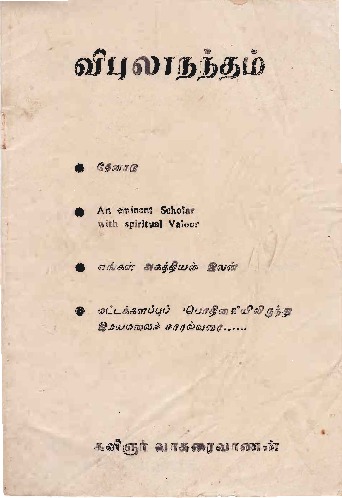 விபுலாநந்தம்
தேனாடு
An eminent Scholar
with spiritual Valour
எங்கள் அகத்தியன் இவன்
மட்டக்களப்புப் 'பொதிகை'யிலிருந்து
இமயமலைச் சாரல்வரை......
கவிஞர் வாகரைவாணன்